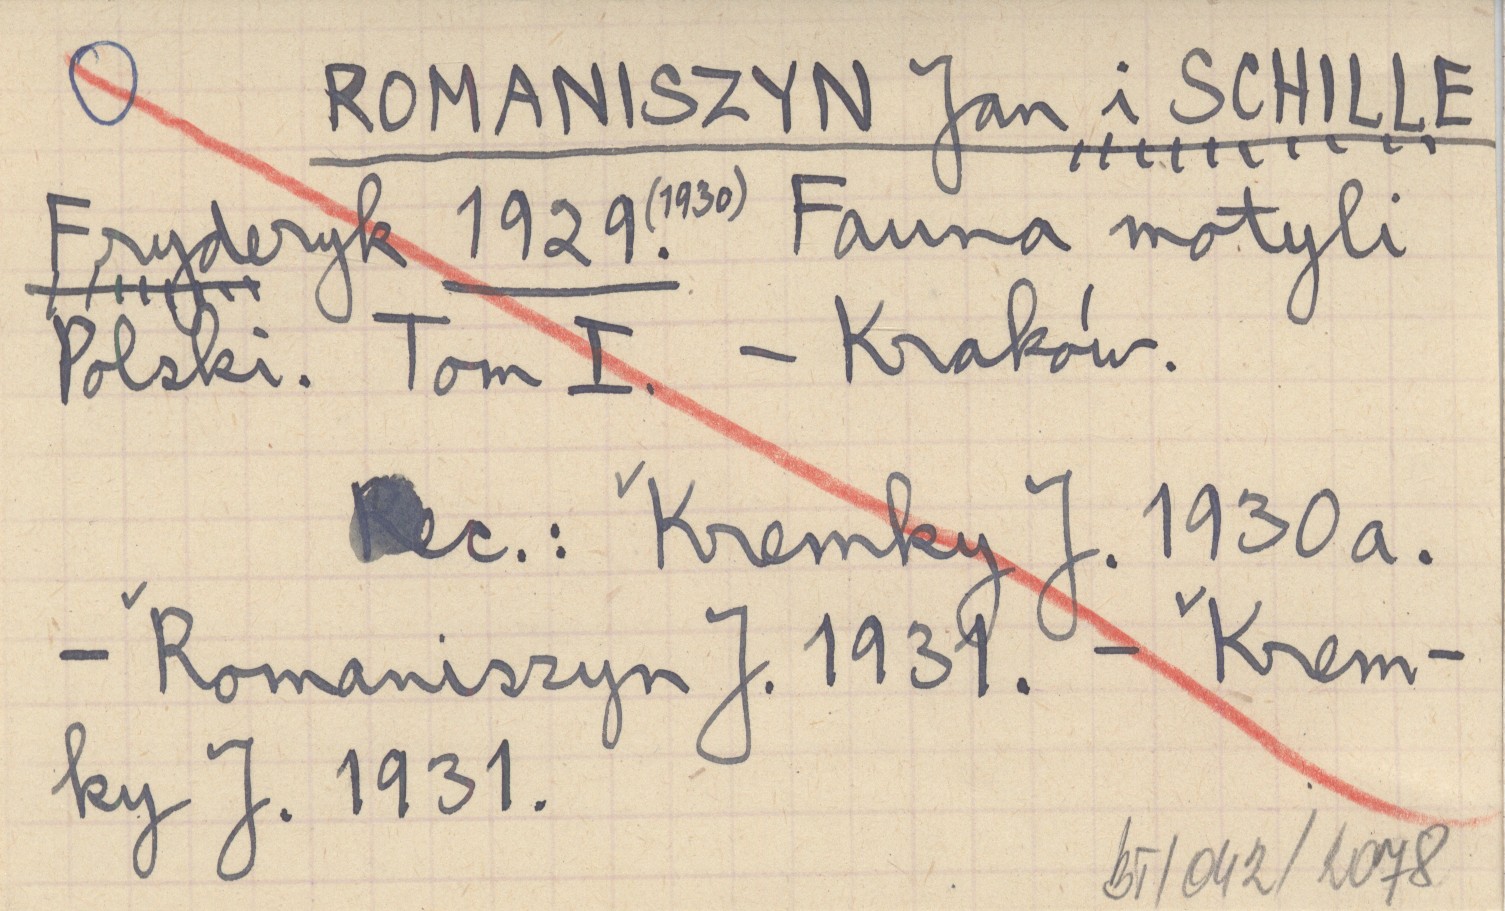 ROMANISZYN Jan i SCHILLE
Fryderyk 1929.(1930) Fauna motyli
Polski. Tom I. – Kraków.
Rec.: Kremky J. 1930a.
– Romaniszyn J. 1931. – Krem-
ky J. 1931.
BT/042/2078